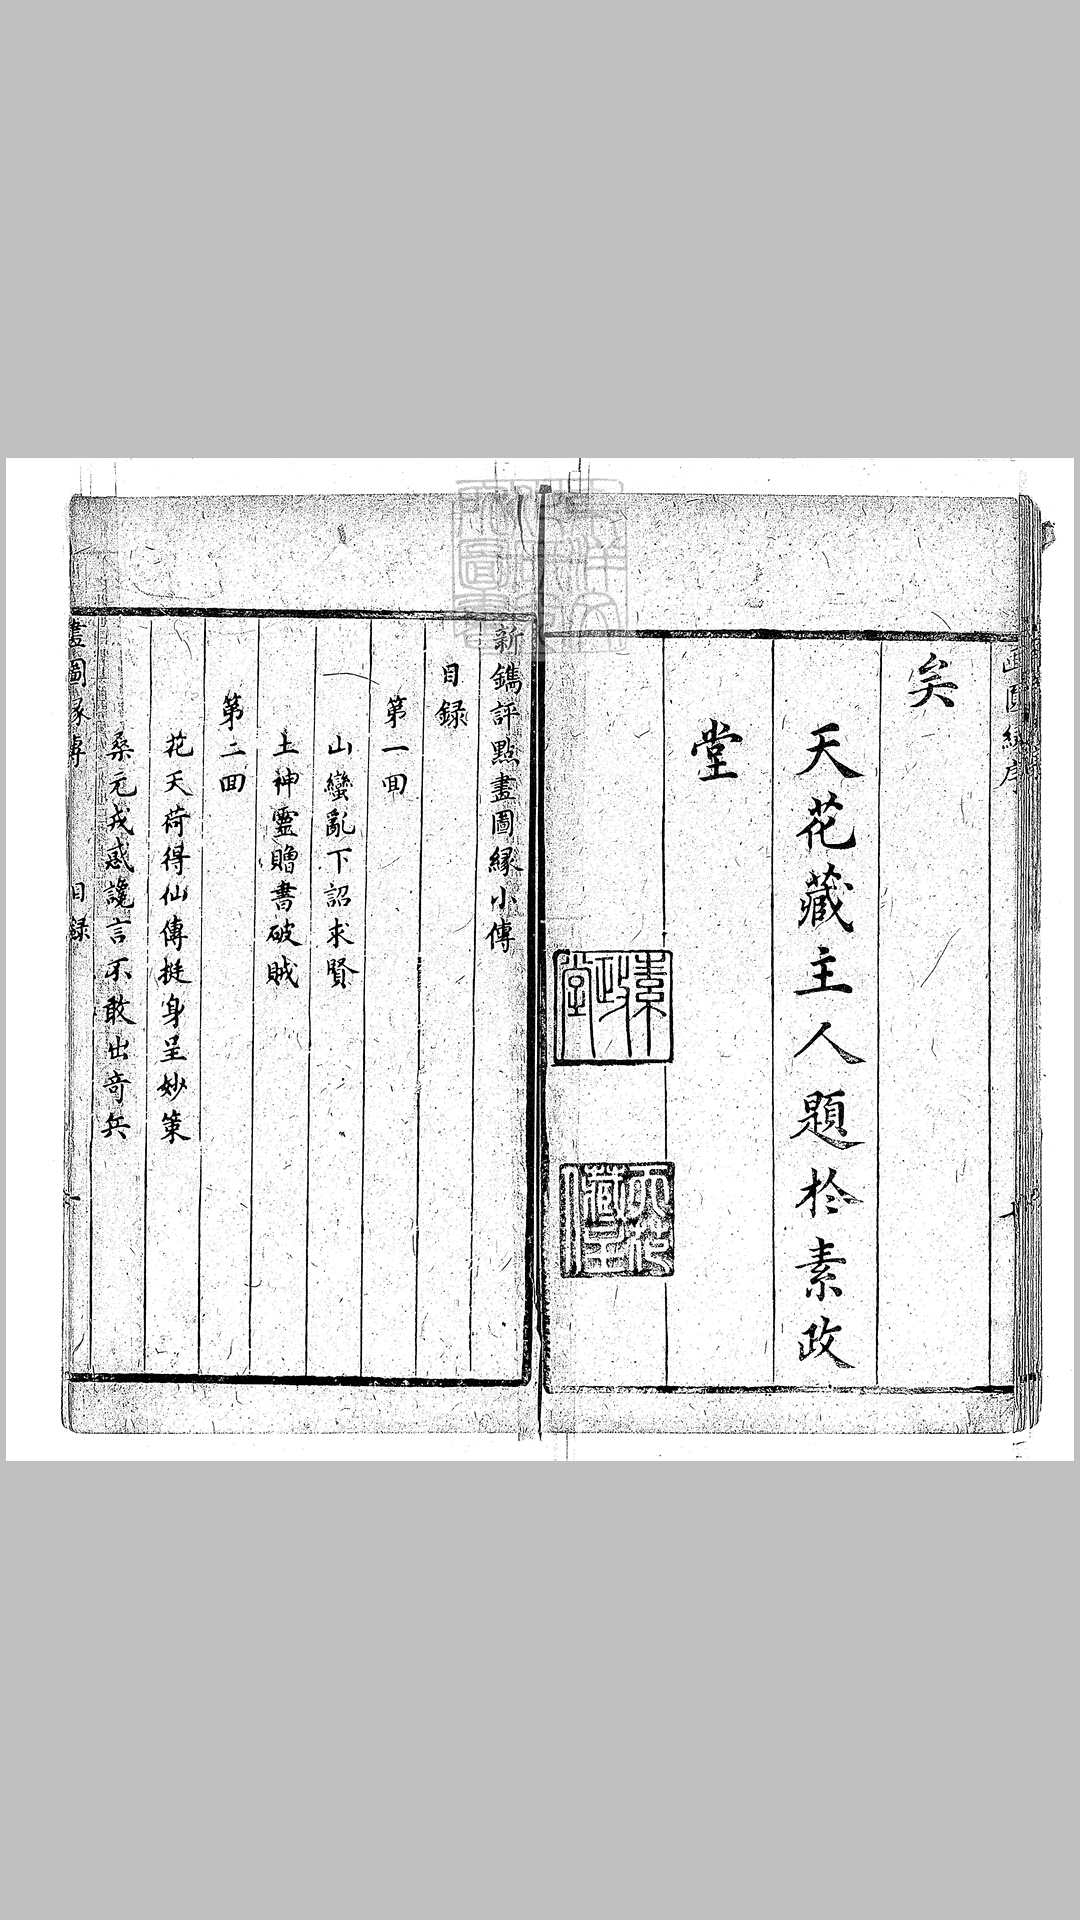 畫圖緣序
矣
天花藏主人題於素政
堂
素政堂
天花藏
新鐫評點畫圖緣小傳
目録
第一回
山蠻亂下詔求賢
土神靈贈書破賊
第二回
花天荷得仙傳挺身呈妙策
桑元戎惑讒言不敢出奇兵
畫圖緣傳
目録